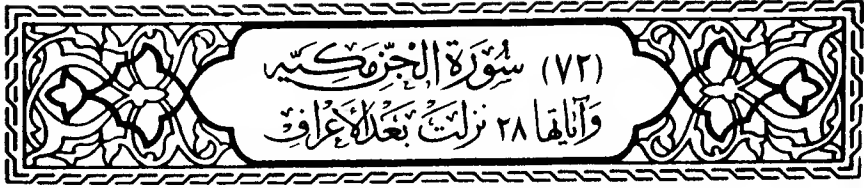 (٧٢) سُورَة الجِنّ مَكيّه
وَآيَاتهَا ٢٨ نَزلَتْ بَعْدَ الأعْرَافِ